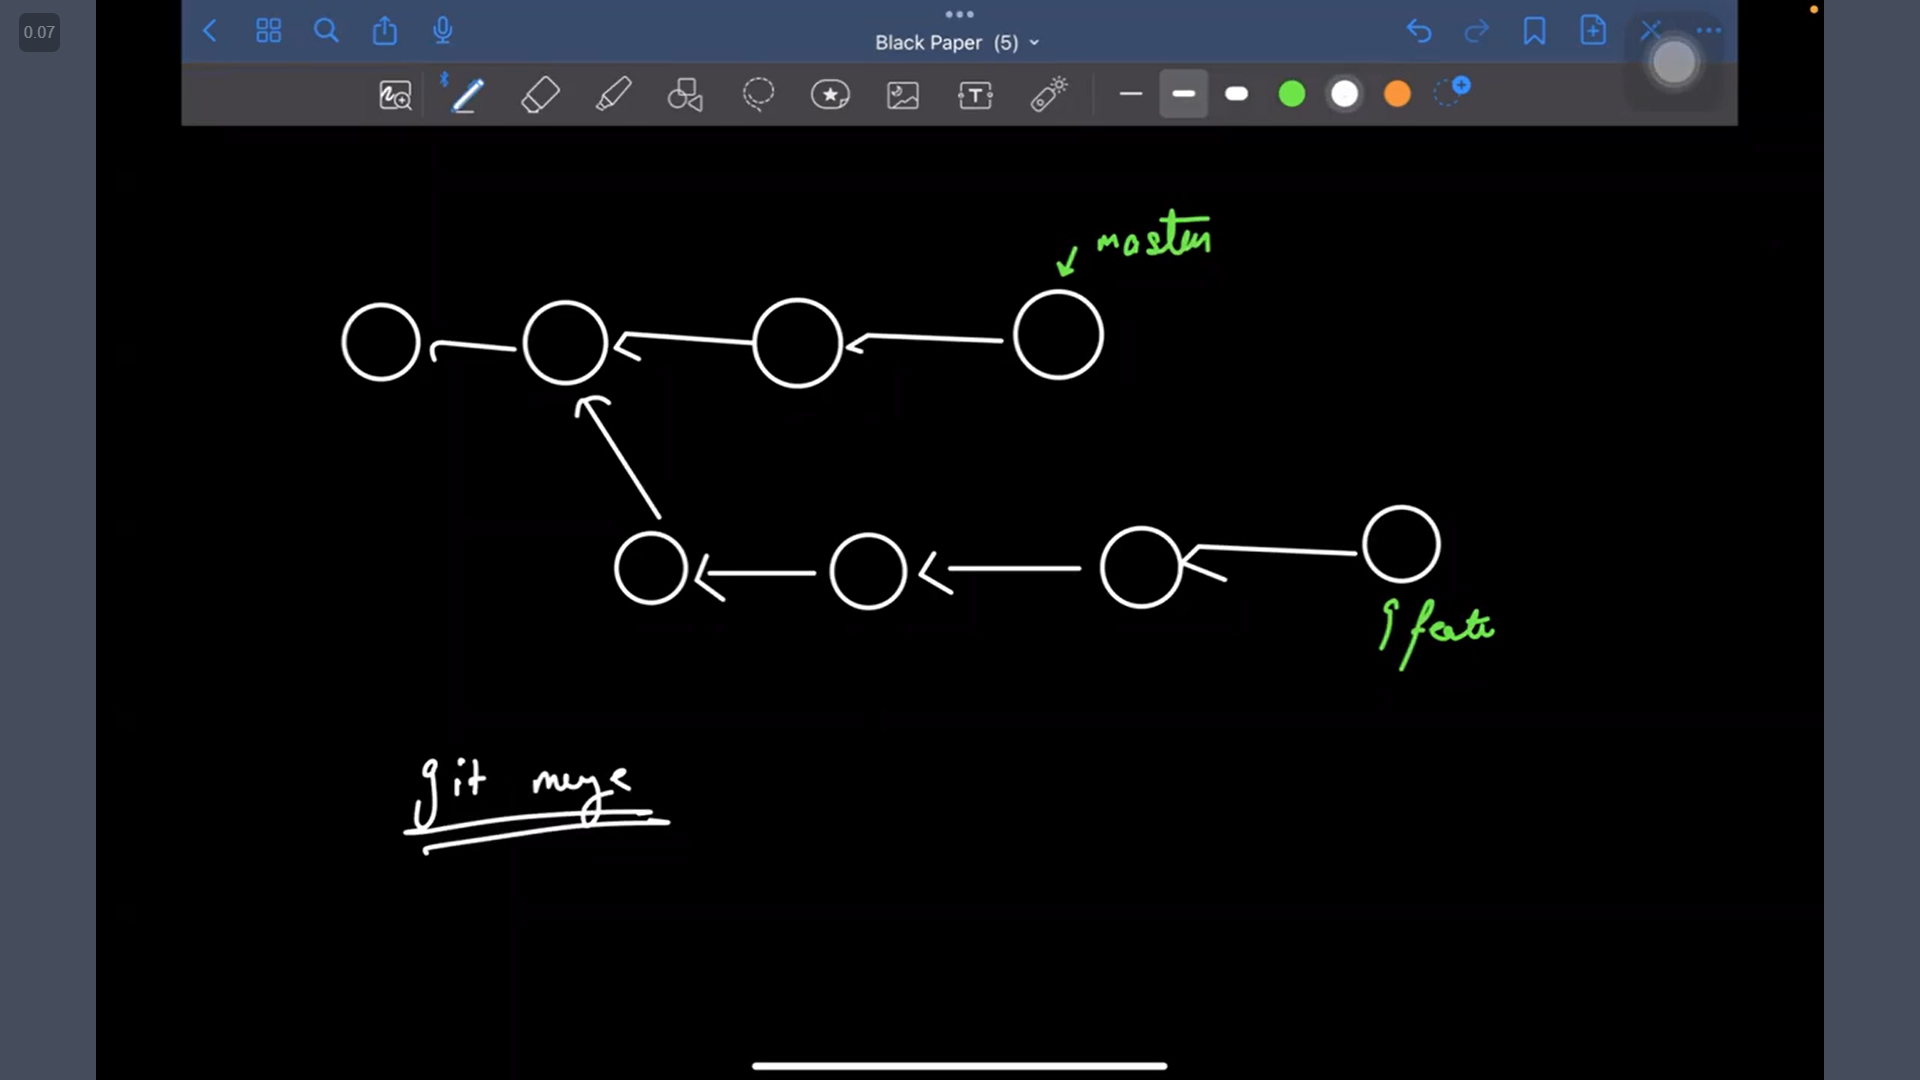 0.07
Black Paper (5)
T
master
feate
git merge